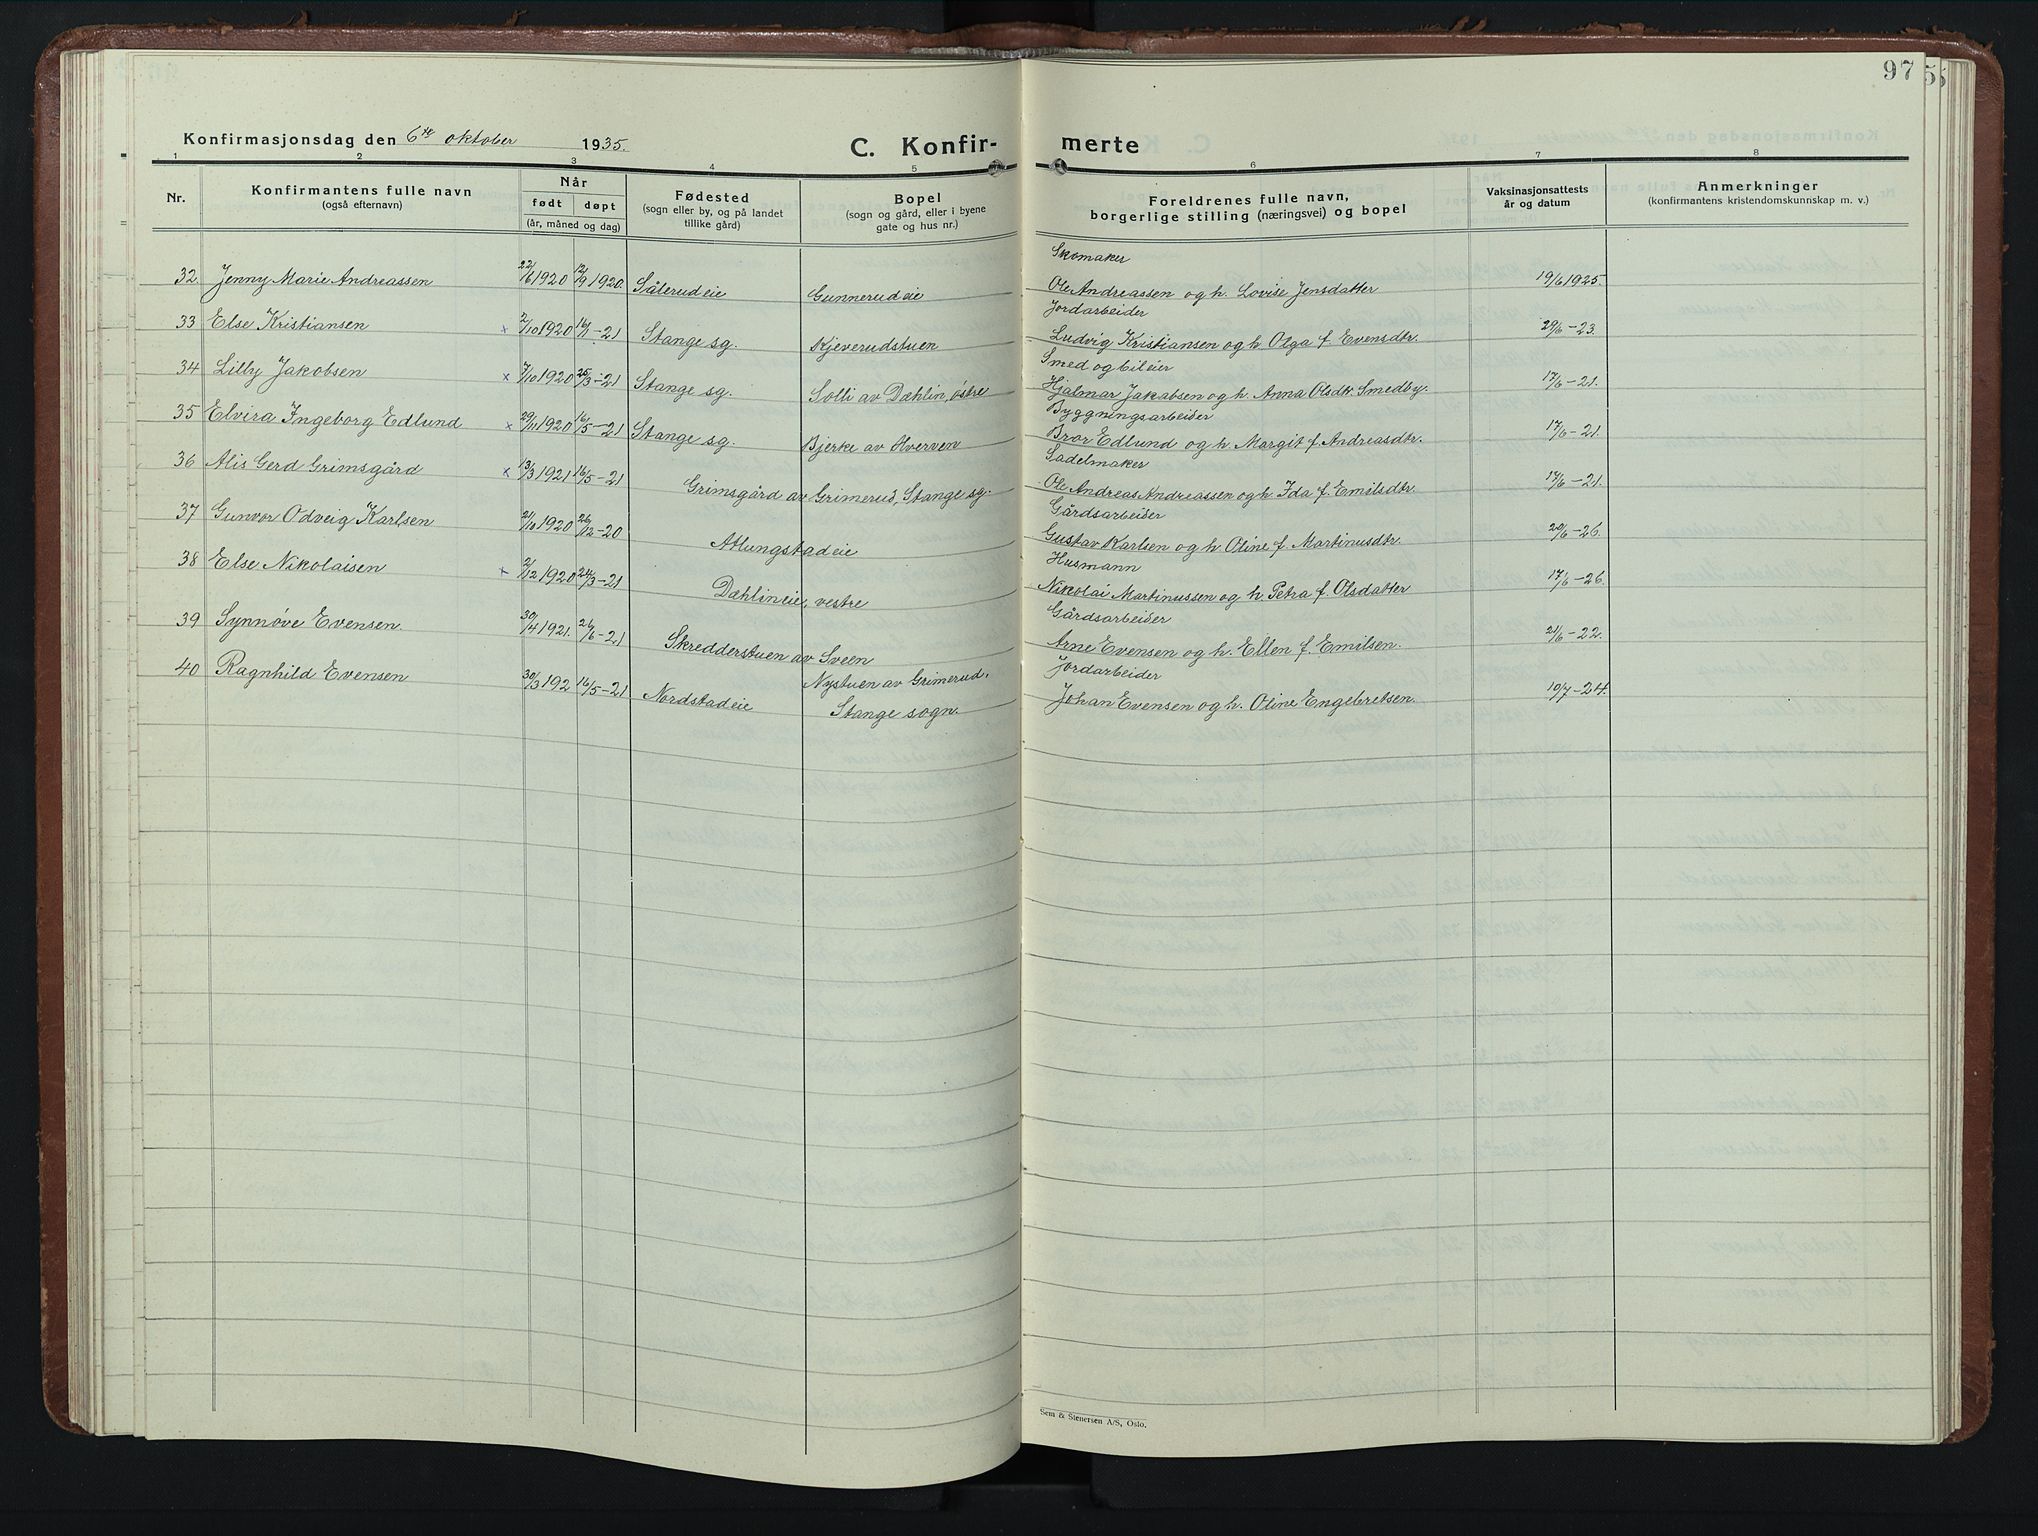 97
Konfirmasjonsdag den 6te oktober 1935.
C. Konfir-
merte
1 2 3 4 5 6 7 8
Nr.
Konfirmantens fulle navn
(også efternavn)
Når
født døpt
(år, måned og dag)
Fødested
(sogn eller by, og på landet
tillike gård)
Bopel
(sogn og gård, eller i byene
gate og hus nr.)
Foreldrenes fulle navn,
borgerlige stilling (næringsvei) og bopel
Vaksinasjonsattests
år og datum
Anmerkninger
(konfirmantens kristendomskunnskap m. v.)
Skomaker
32 Jenny Marie Andreassen 22/6 1920 12/9 1920. Sålerudeie Gunnerudeie Ole Andreassen og h. Lovise Jensdatter 19/6 1925.
Jordarbeider
33 Else Kristiansen x 2/10 1920 16/1-21 Stange sg. Kjeverudstuen Ludvig Kristiansen og h. Olga f. Evensdtr. 29/6-23.
Smed og bileier
34 Lilly Jakobsen x 7/10 1920 25/3-21 Stange sg. Solli av Dæhlin, østre Hjalmar Jakobsen og h. Anna Olsdtr. Smedby. 17/6-21.
Byggningsarbeider
35 Elvira Ingeborg Edlund x 29/11 1920 16/5-21 Stange sg. Bjerke av Hverven Bror Edlund og h. Margit f. Andreasdtr. 17/6-21.
Sadelmaker
36 Alis Gerd Grimsgård x 13/3 1921 16/5-21 Grimsgård av Grimerud, Stange sg. Ole Andreas Andreassen og h. Ida f. Emilsdtr. 17/6-21.
Gårdsarbeider
37 Gunvor Odveig Karlsen 21/10 1920 26/12-20 Atlungstadeie Gustav Karlsen og h. Oline f. Martinusdtr. 20/6-26.
Husmann
38 Else Nikolaisen x 2/12 1920 24/3-21 Dæhlineie, vestre Nikolai Martinussen og h. Petra f. Olsdatter 17/6-26.
Gårdsarbeider
39 Synnøve Evensen. 30/4 1921. 26/6-21 Skredderstuen av Sveen Arne Evensen og h. Ellen f. Emilsen. 21/6-22.
Jordarbeider
40 Ragnhild Evensen 30/3 192 16/5-21 Nordstadeie Nystuen av Grimerud, Johan Evensen og h. Oline Engebretsen. 10/7-24.
Stange sogn.
Sem & Stenersen A/S, Oslo.